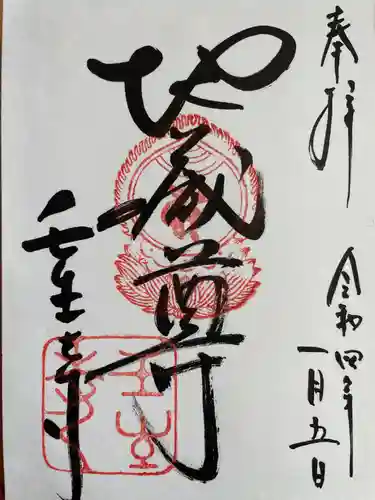 奉拝
令和四年
一月五日
地蔵尊
壬生寺